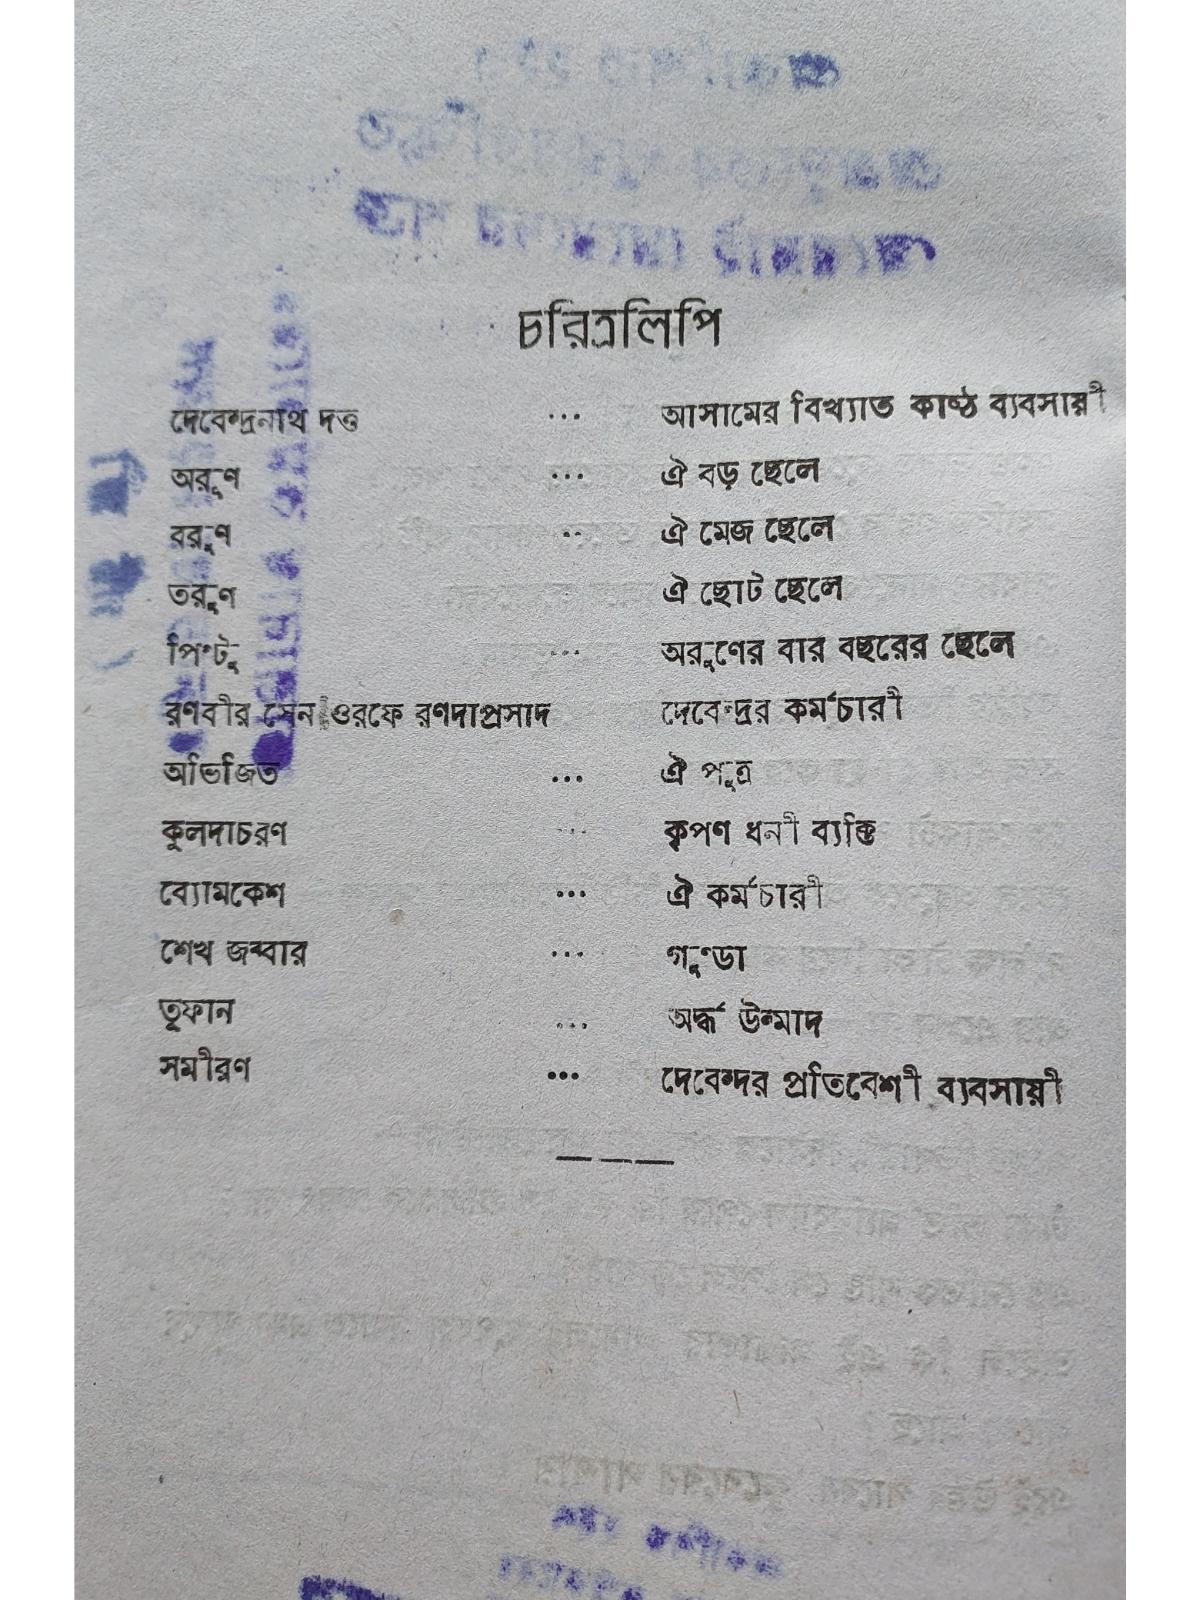 চরিত্রলিপি
দেবেন্দ্রনাথ দত্ত ... আসামের বিখ্যাত কাষ্ঠ ব্যবসায়ী
অরুণ ... ঐ বড় ছেলে
বরুণ .. ঐ মেজ ছেলে
তরুণ ঐ ছোট ছেলে
পিণ্টু ... অরুণের বার বছরের ছেলে
রণবীর সেন ওরফে রণদাপ্রসাদ দেবেন্দ্রর কর্মচারী
অভিজিত ... ঐ পুত্র
কুলদাচরণ ... কৃপণ ধনী ব্যক্তি
ব্যোমকেশ ... ঐ কর্মচারী
শেখ জব্বার ... গুণ্ডা
তুফান ... অর্দ্ধ উন্মাদ
সমীরণ ... দেবেন্দর প্রতিবেশী ব্যবসায়ী